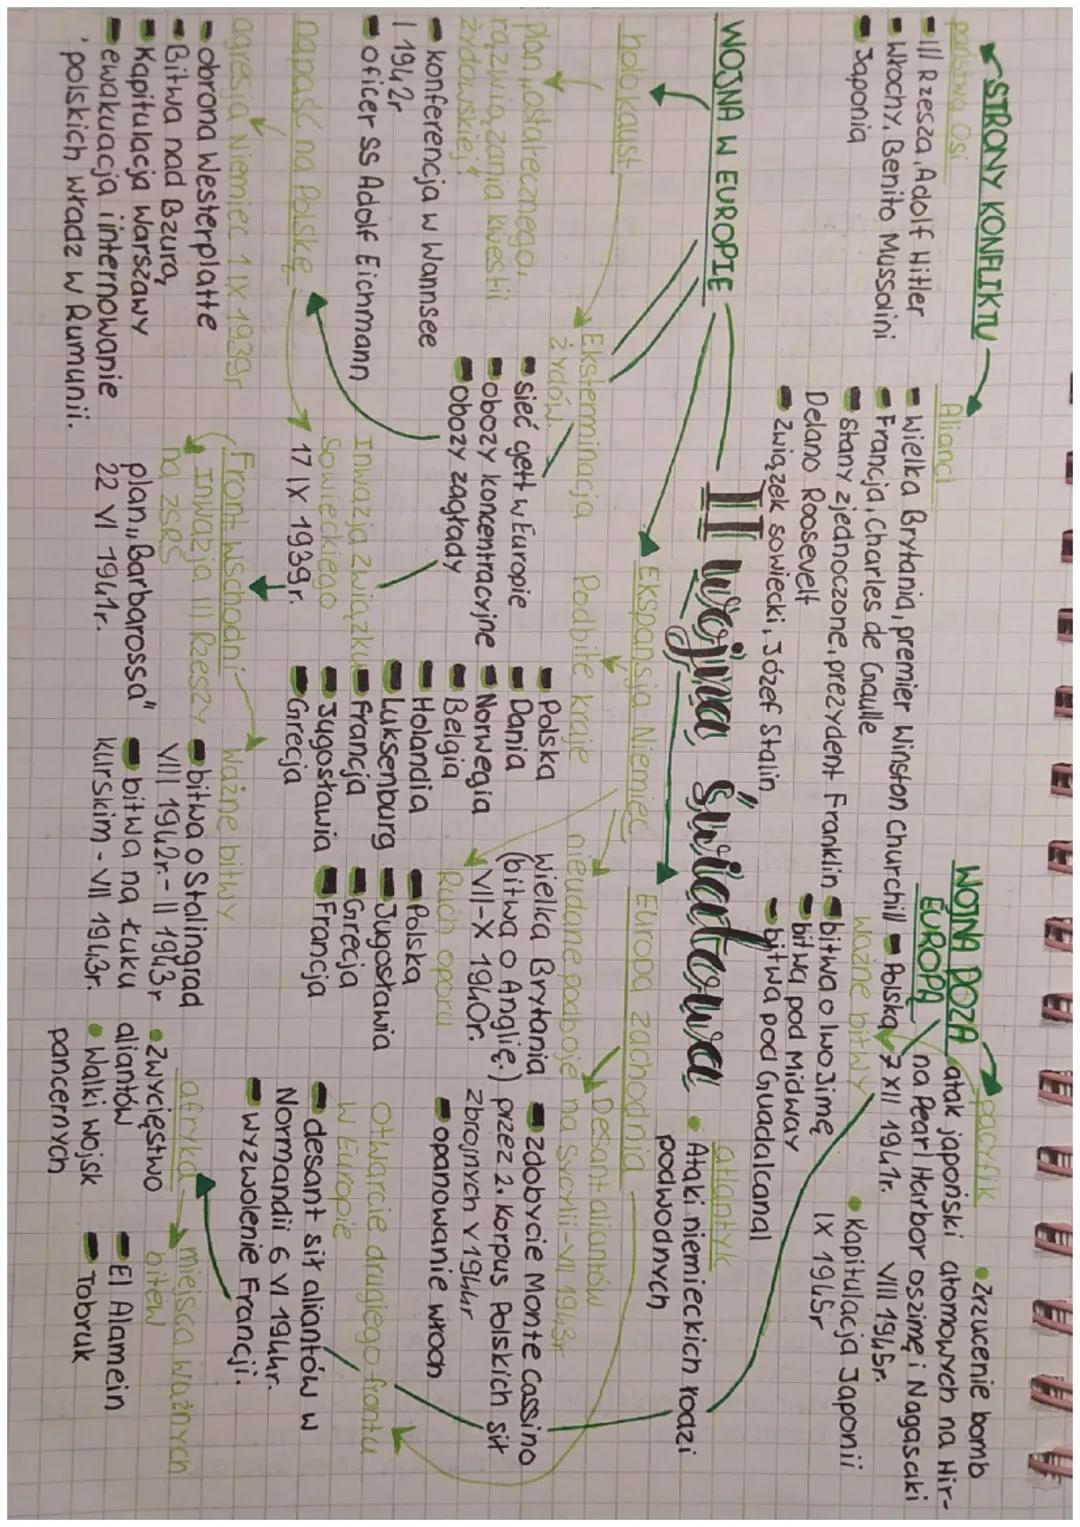 II wojna światowa
STRONY KONFLIKTU
państwa Osi
III Rzesza, Adolf Hitler
Włochy, Benito Mussolini
Japonia
Alianci
Wielka Brytania, premier Winston Churchill
Francja, Charles de Gaulle
Stany zjednoczone, prezydent Franklin
Delano Roosevelt
Związek sowiecki, Józef Stalin
Polska
WOJNA POZA
EUROPĄ
pacyfik
atak japoński
na Pearl Harbor
7 XII 1941r.
zrzucenie bomb
atomowych na Hir-
oszimę i Nagasaki
VIII 1945r.
Kapitulacja Japonii
IX 1945r
ważne bitwy
bitwa o Iwo Jimę
bitwa pod Midway
bitwa pod Guadalcanal
atlantyk
Ataki niemieckich łodzi
podwodnych
WOJNA W EUROPIE
holokaust
plan „ostatecznego,
rozwiązania kwestii
żydowskiej"
konferencja w Wannsee
I 1942r
oficer SS Adolf Eichmann
Eksterminacja
żydów
sieć gett w Europie
obozy koncentracyjne
Obozy zagłady
Ekspansja Niemiec
Podbite kraje
Polska
Dania
Norwegia
Belgia
Holandia
Luksenburg
Francja
Jugosławia
Grecja
nieudane podboje
Wielka Brytania
(bitwa o Anglię.)
VII-X 1940r.
Ruch oporu
Polska
Jugosławia
Grecja
Francja
Europa zachodnia
Desant aliantów
na Sycylii - VII 1943r
zdobycie Monte Cassino
przez 2. Korpus Polskich sił
zbrojnych V 1944r
opanowanie włoch
Otwarcie drugiego frontu
w Europie
desant sił aliantów w
Normandii 6 VI 1944r.
Wyzwolenie Francji.
napaść na Polskę
agresja Niemiec 1 IX 1939r
obrona Westerplatte
Bitwa nad Bzurą
Kapitulacja Warszawy
ewakuacja i internowanie
polskich władz w Rumunii.
Inwazja Związku
Sowieckiego
17 IX 1939r.
Front Wschodni
Inwazja III Rzeszy
na ZSRS
plan „Barbarossa"
22 VI 1941r.
Ważne bitwy
bitwa o Stalingrad
VIII 1942r. - II 1943r
bitwa na Łuku
Kurskim - VII 1943r.
afryka
zwycięstwo
aliantów
Walki wojsk
pancernych
miejsca ważnych
bitew
El Alamein
Tobruk